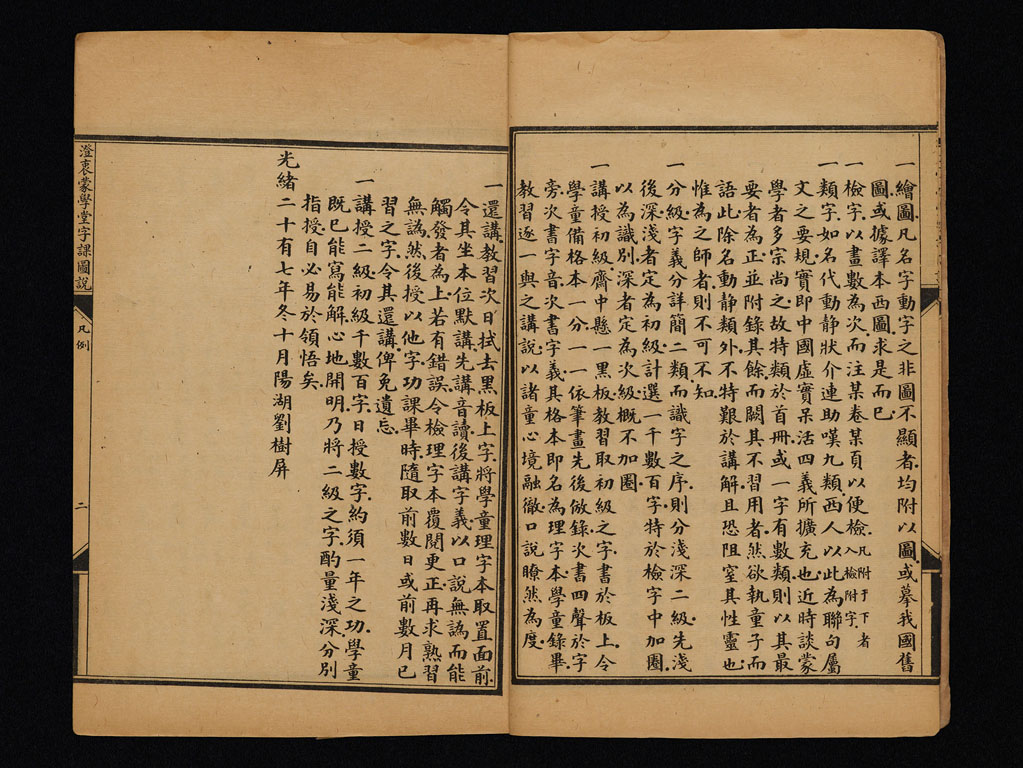 一繪圖凡名字動字之非圖不顯者均附以圖或摹我國舊
圖或據譯本西圖求是而已
一檢字以畫數為次而注某卷某頁以便檢入凡附于下者檢附字
一類字如名代動靜狀介連助嘆九類西人以此為聯句屬
文之要規實即中國虛實呆活四義所擴充也近時談蒙
學者多宗尚之故特類於首冊或一字有數類則以其最
要者為正並附錄其餘而闕其不習用者然欲執童子而
語此除名動靜類外不特艱於講解且恐阻窒其性靈也
惟為之師者則不可不知
一分級字義分詳簡二類而識字之序則分淺深二級先淺
後深淺者定為初級計選一千數百字特於檢字中加圈
以為識別深者定為次級概不加圈
一講授初級齋中懸一黑板教習取初級之字書於板上令
學童備格本一分一一依筆畫先後倣錄次書四聲於字
旁次書字音次書字義其格本即名為理字本學童錄畢
教習逐一與之講說以諸童心境融徹口說瞭然為度
一還講教習次日拭去黑板上字將學童理字本取置面前
令其坐本位默講先講音讀後講字義以口說無譌而能
觸發者為上若有錯誤令檢理字本覆閱更正再求熟習
無譌然後授以他字功課畢時隨取前數日或前數月已
習之字令其還講俾免遺忘
一講授二級初級千數百字日授數字約須一年之功學童
既已能寫能解心地開明乃將二級之字酌量淺深分別
指授自必易於領悟矣
光緒二十有七年冬十月陽湖劉樹屏
澄衷蒙學堂字課圖說
凡例
二